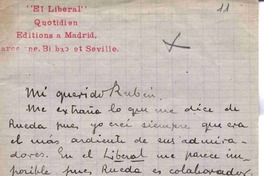 "El Liberal"
Quotidien
Editions a Madrid,
Barcelone, Bilbao et Seville.
11
Mi querido Rubén.
Me extraña lo que me dice de
Rueda pues yo creí siempre que era
el más ardiente de sus admira-
dores. En el Liberal me parece im-
posible pues Rueda es colaborador